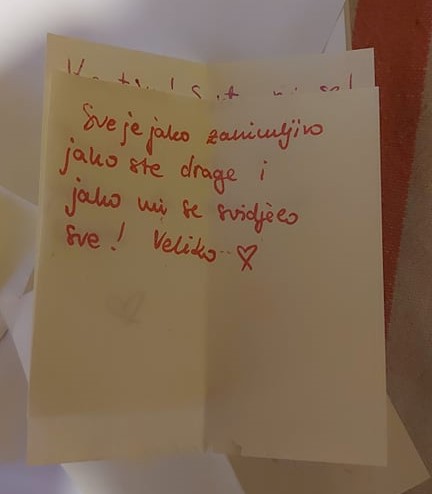 Sve je jako zanimljivo
jako ste drage i
jako mi se svidjelo
sve! Veliko ♡